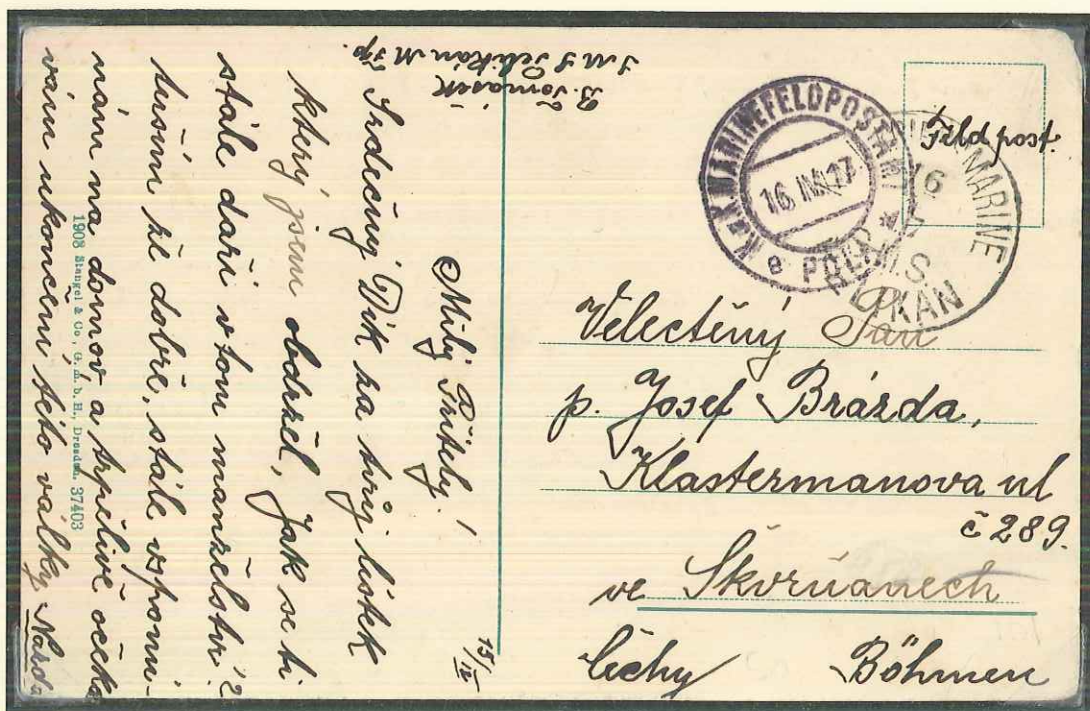 B Tomášek
S M S Pelikán M Fp.
Milý Příteli!
15/IX
Srdečný Dík za tvůj lístek
který jsem obdržel, Jak se ti
stále daří v tom manželství?
tuším že dobře, stále vzpomí-
nám na domov a trpělivě očeká
vám ukončení této války Nazda
1908 Stengel & Co., G. m. b. H., Dresden. 37403
Feld post.
K.u.K. MARINEFELDPOSTAMT
16. IX. 17
e POLA
MARINE
16
S.M.S.
PELIKAN
Velectěný Pan
p. Josef Brázda,
Klastermanova ul
č 289.
ve Škvrňanech
Čechy Böhmen